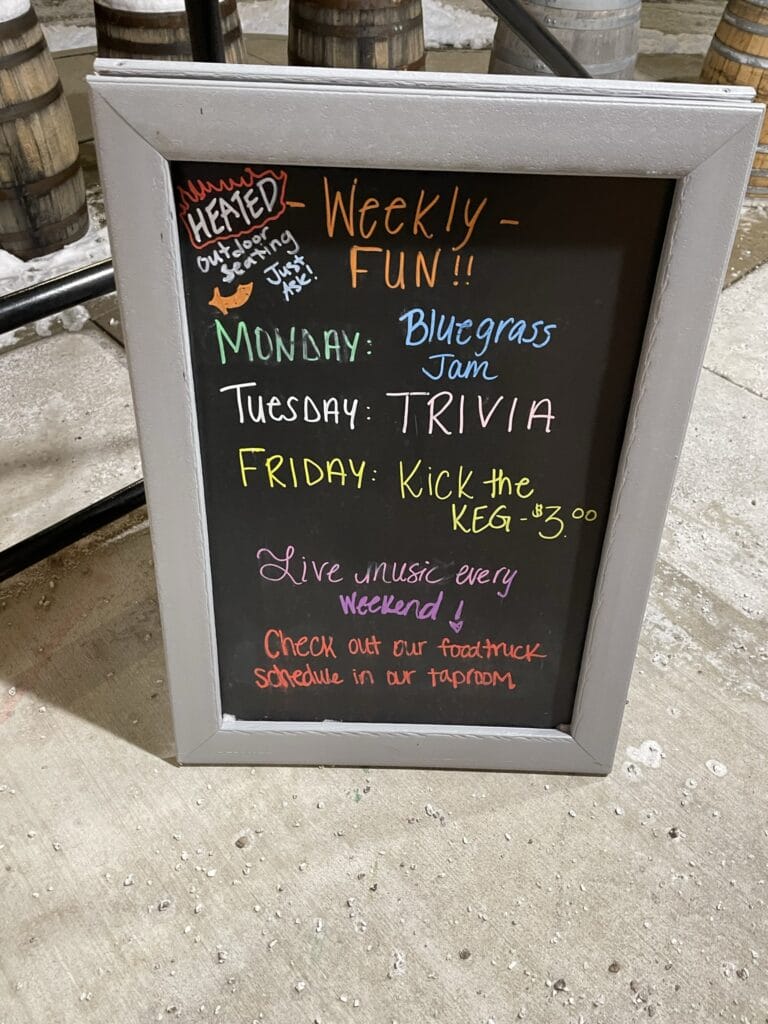 HEATED
outdoor
seating
Just
Ask!
- Weekly -
FUN!!
MONDAY: Bluegrass
Jam
TUESDAY: TRIVIA
FRIDAY: Kick the
KEG - $3.00
Live music every
weekend!
Check out our foodtruck
schedule in our taproom